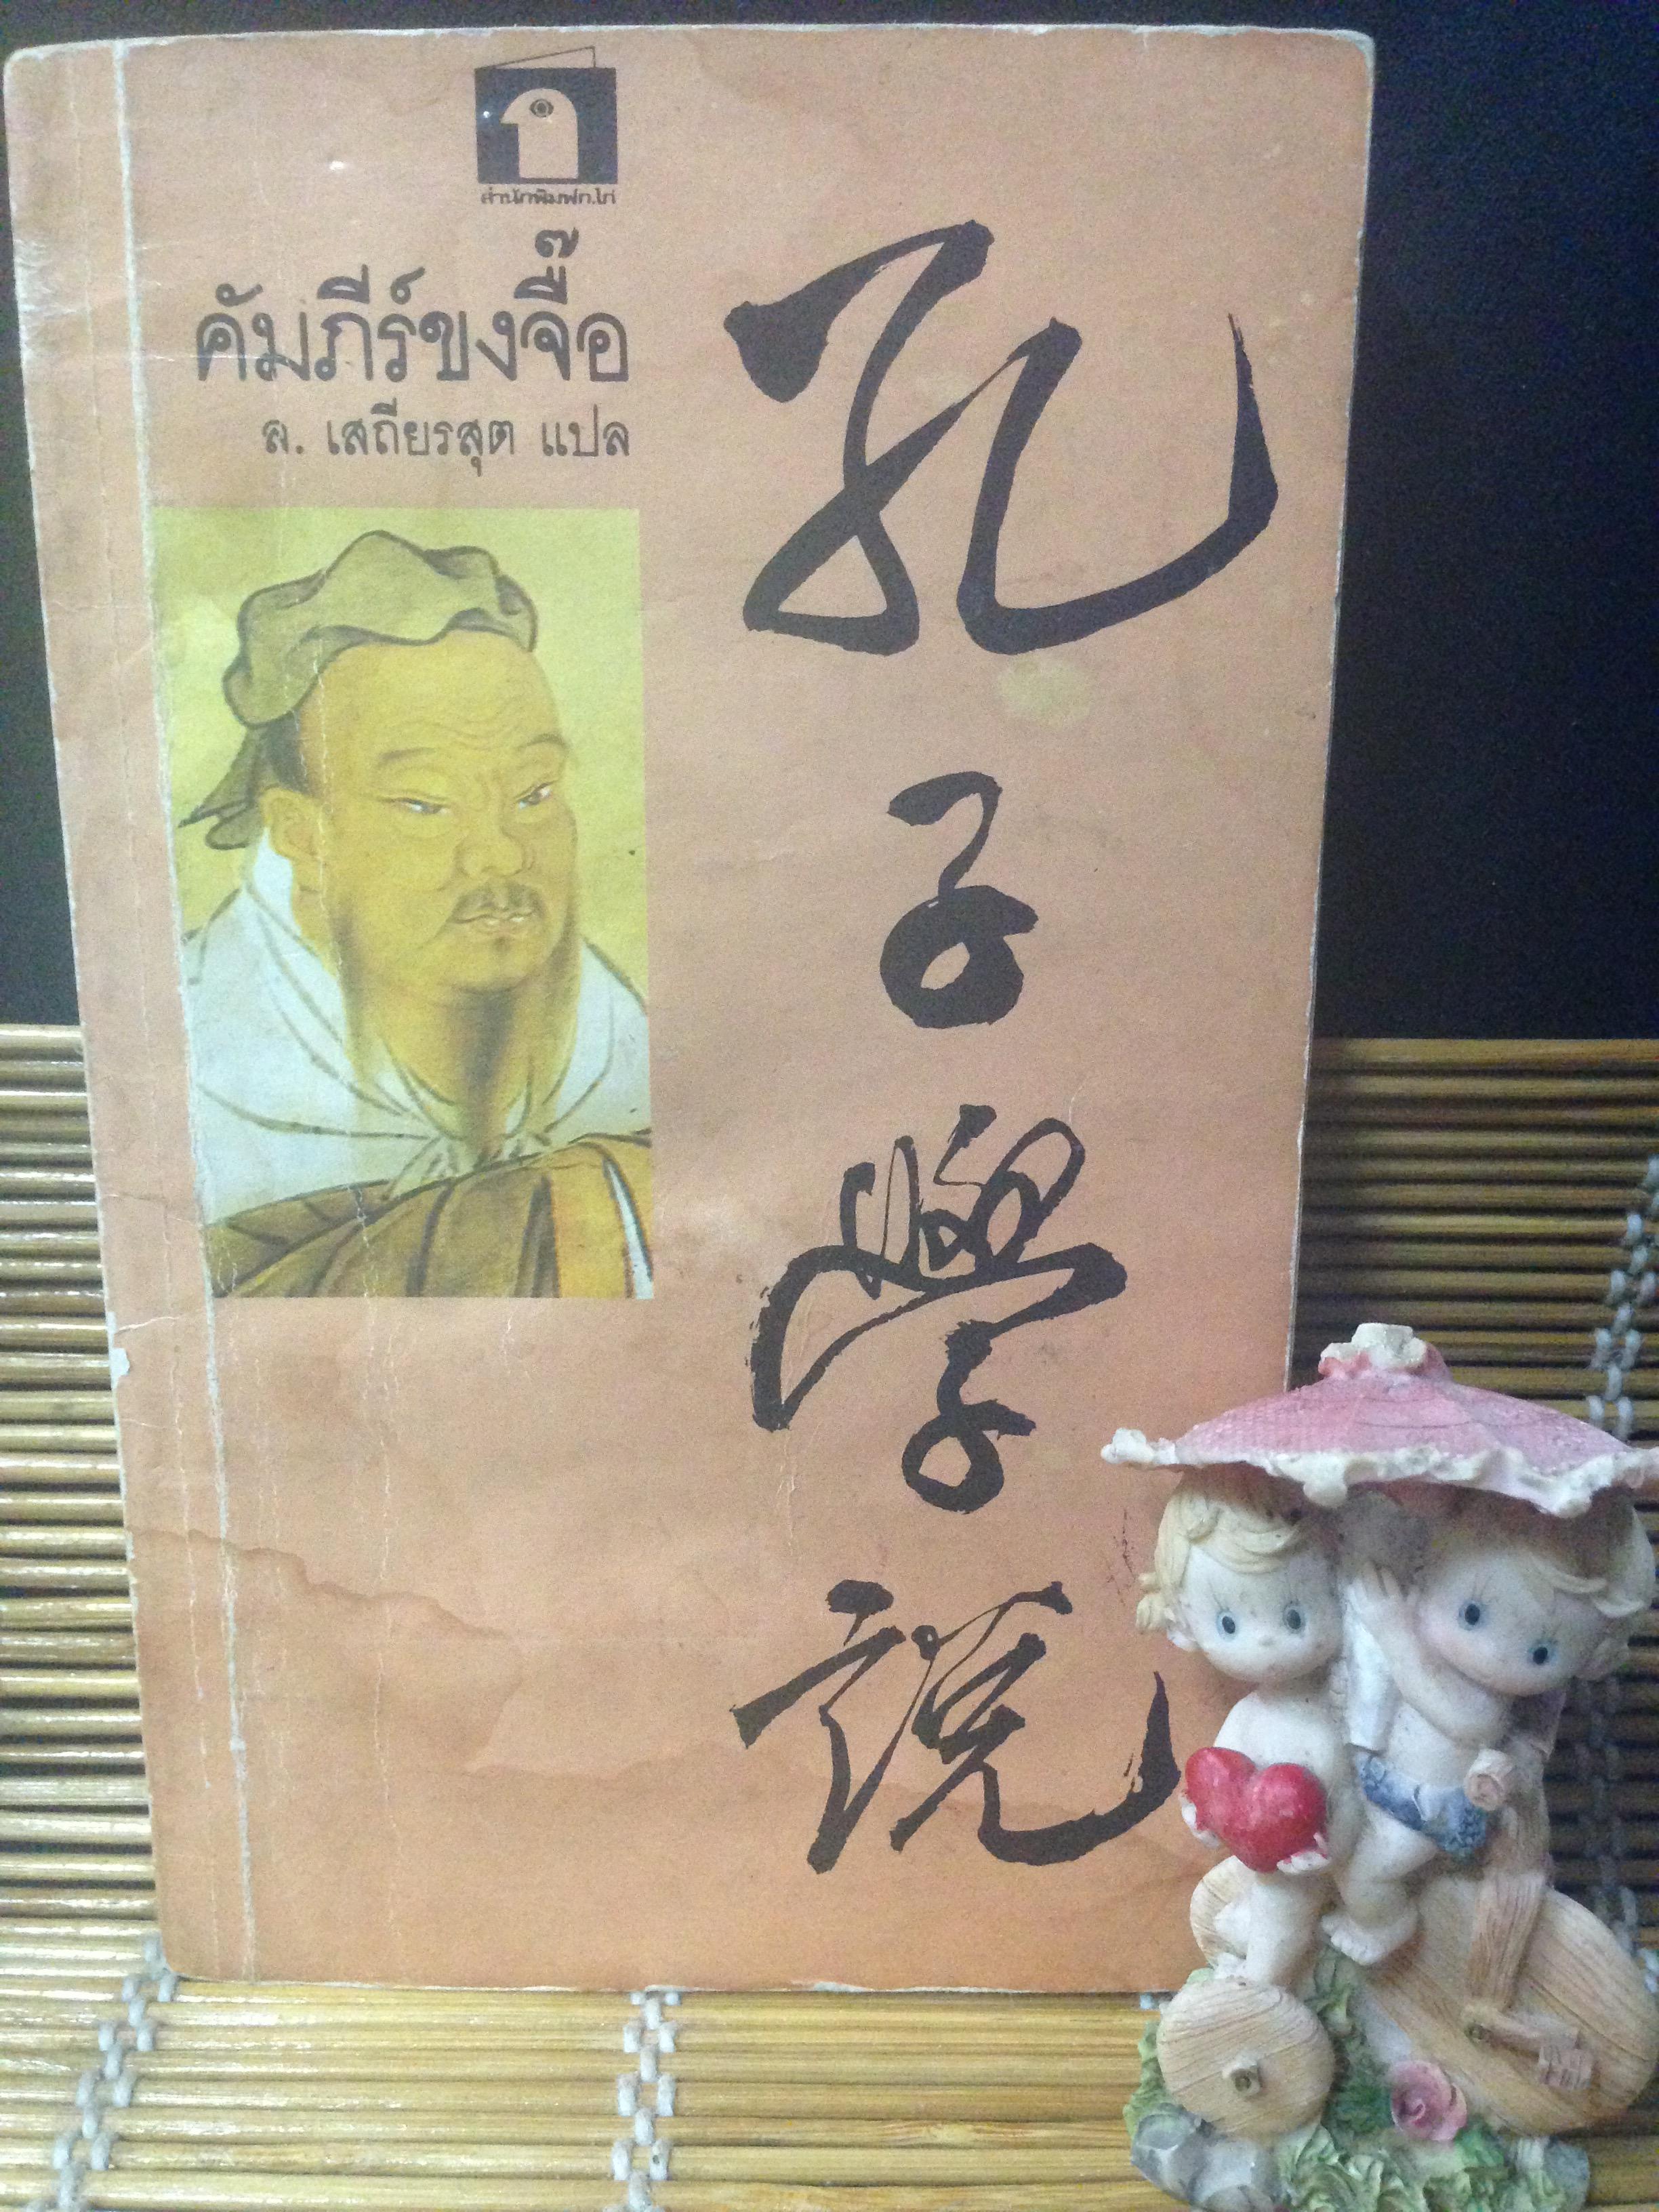 สำนักพิมพ์ก.ไก่
คัมภีร์ขงจื๊อ
ล. เสถียรสุต แปล
孔子學說